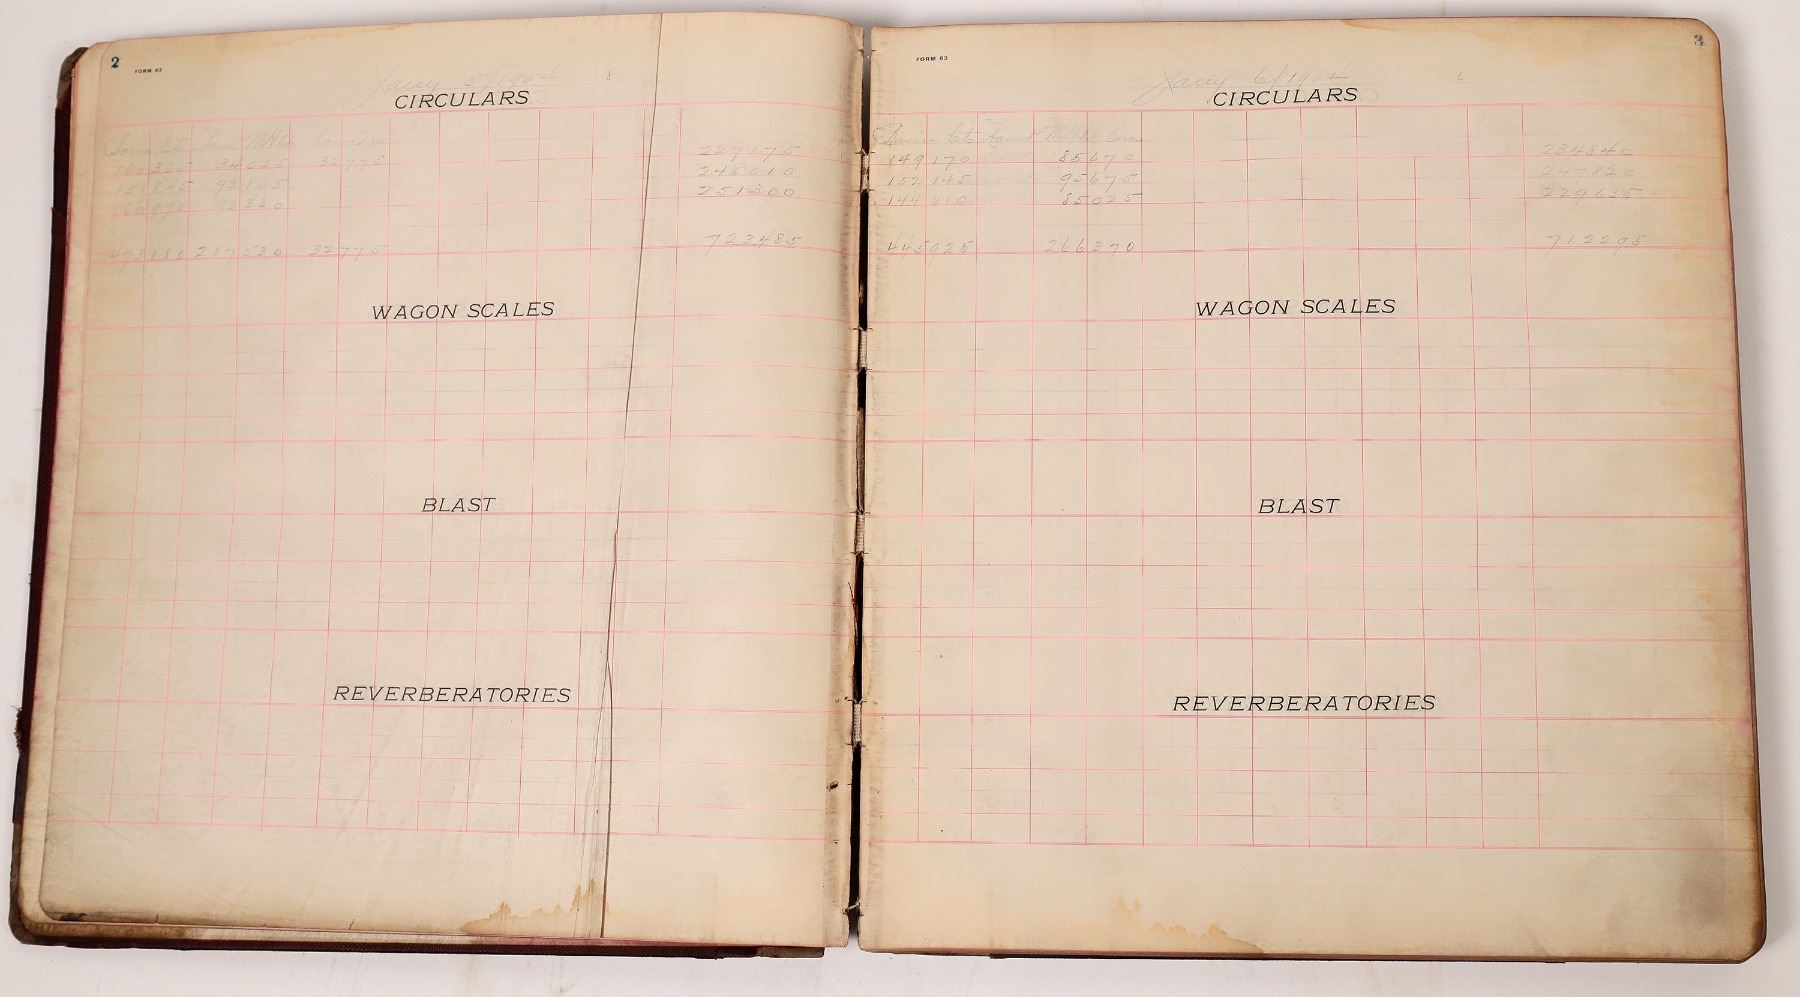 2
FORM 63
Jany 5/1904
CIRCULARS
160325 34025 32775 227175
151845 93165 245010
160970 90330 251300
473180 217530 32775 723485
WAGON SCALES
BLAST
REVERBERATORIES
3
FORM 63
Jany 6/1904
CIRCULARS
149170 85670 234840
152145 95675 247820
144610 85025 229635
445925 266370 712295
WAGON SCALES
BLAST
REVERBERATORIES